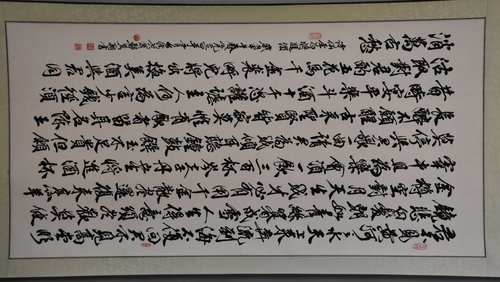 君不見黄河之水天上来奔流到海不復回君不見高堂明
鏡悲白髮朝如青絲暮成雪人生得意須盡歡莫使
金樽空對月天生我材必有用千金散盡還復来烹羊
宰牛且為樂會須一飲三百杯岑夫子丹丘生將進酒杯
莫停與君歌一曲請君為我傾耳聽鐘鼓饌玉不足貴但願
長醉不願醒古来聖賢皆寂寞惟有飲者留其名陳王
昔時宴平樂斗酒十千恣歡謔主人何為言少錢徑須
沽取對君酌五花馬千金裘呼兒將出換美酒與爾同
消萬古愁